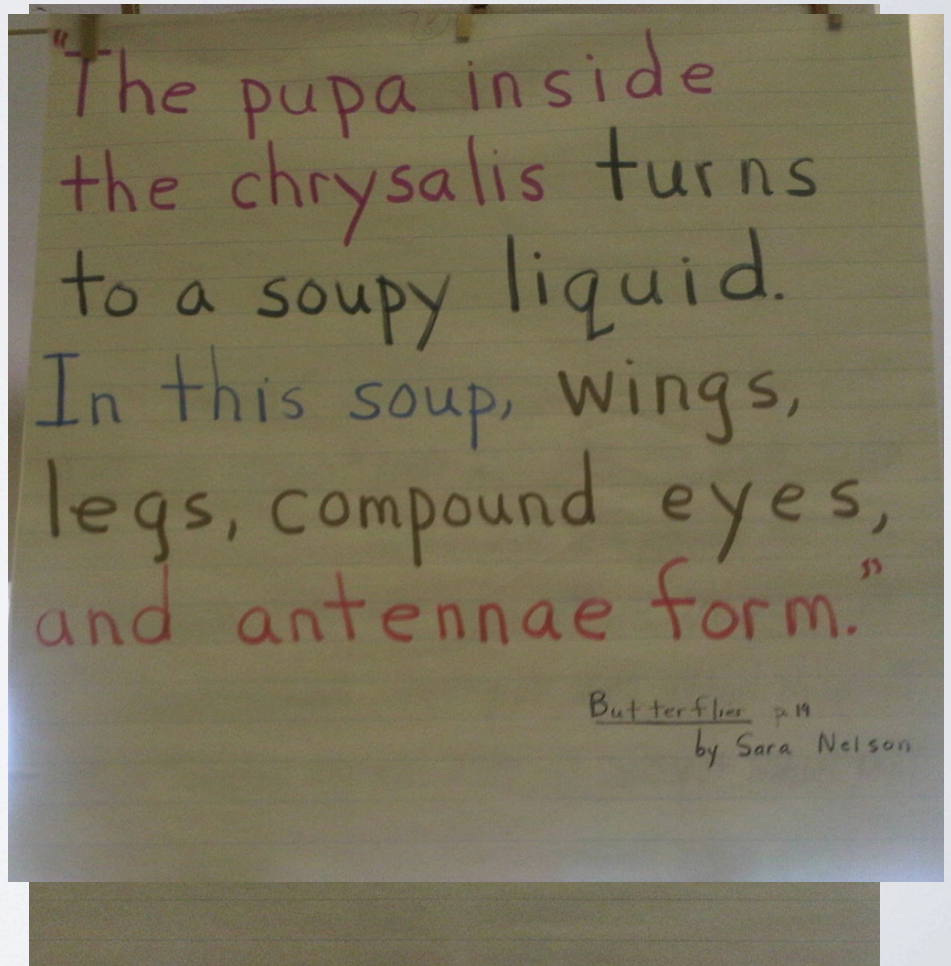 "The pupa inside
the chrysalis turns
to a soupy liquid.
In this soup, wings,
legs, compound eyes,
and antennae form."
Butterflies p. 19
by Sara Nelson